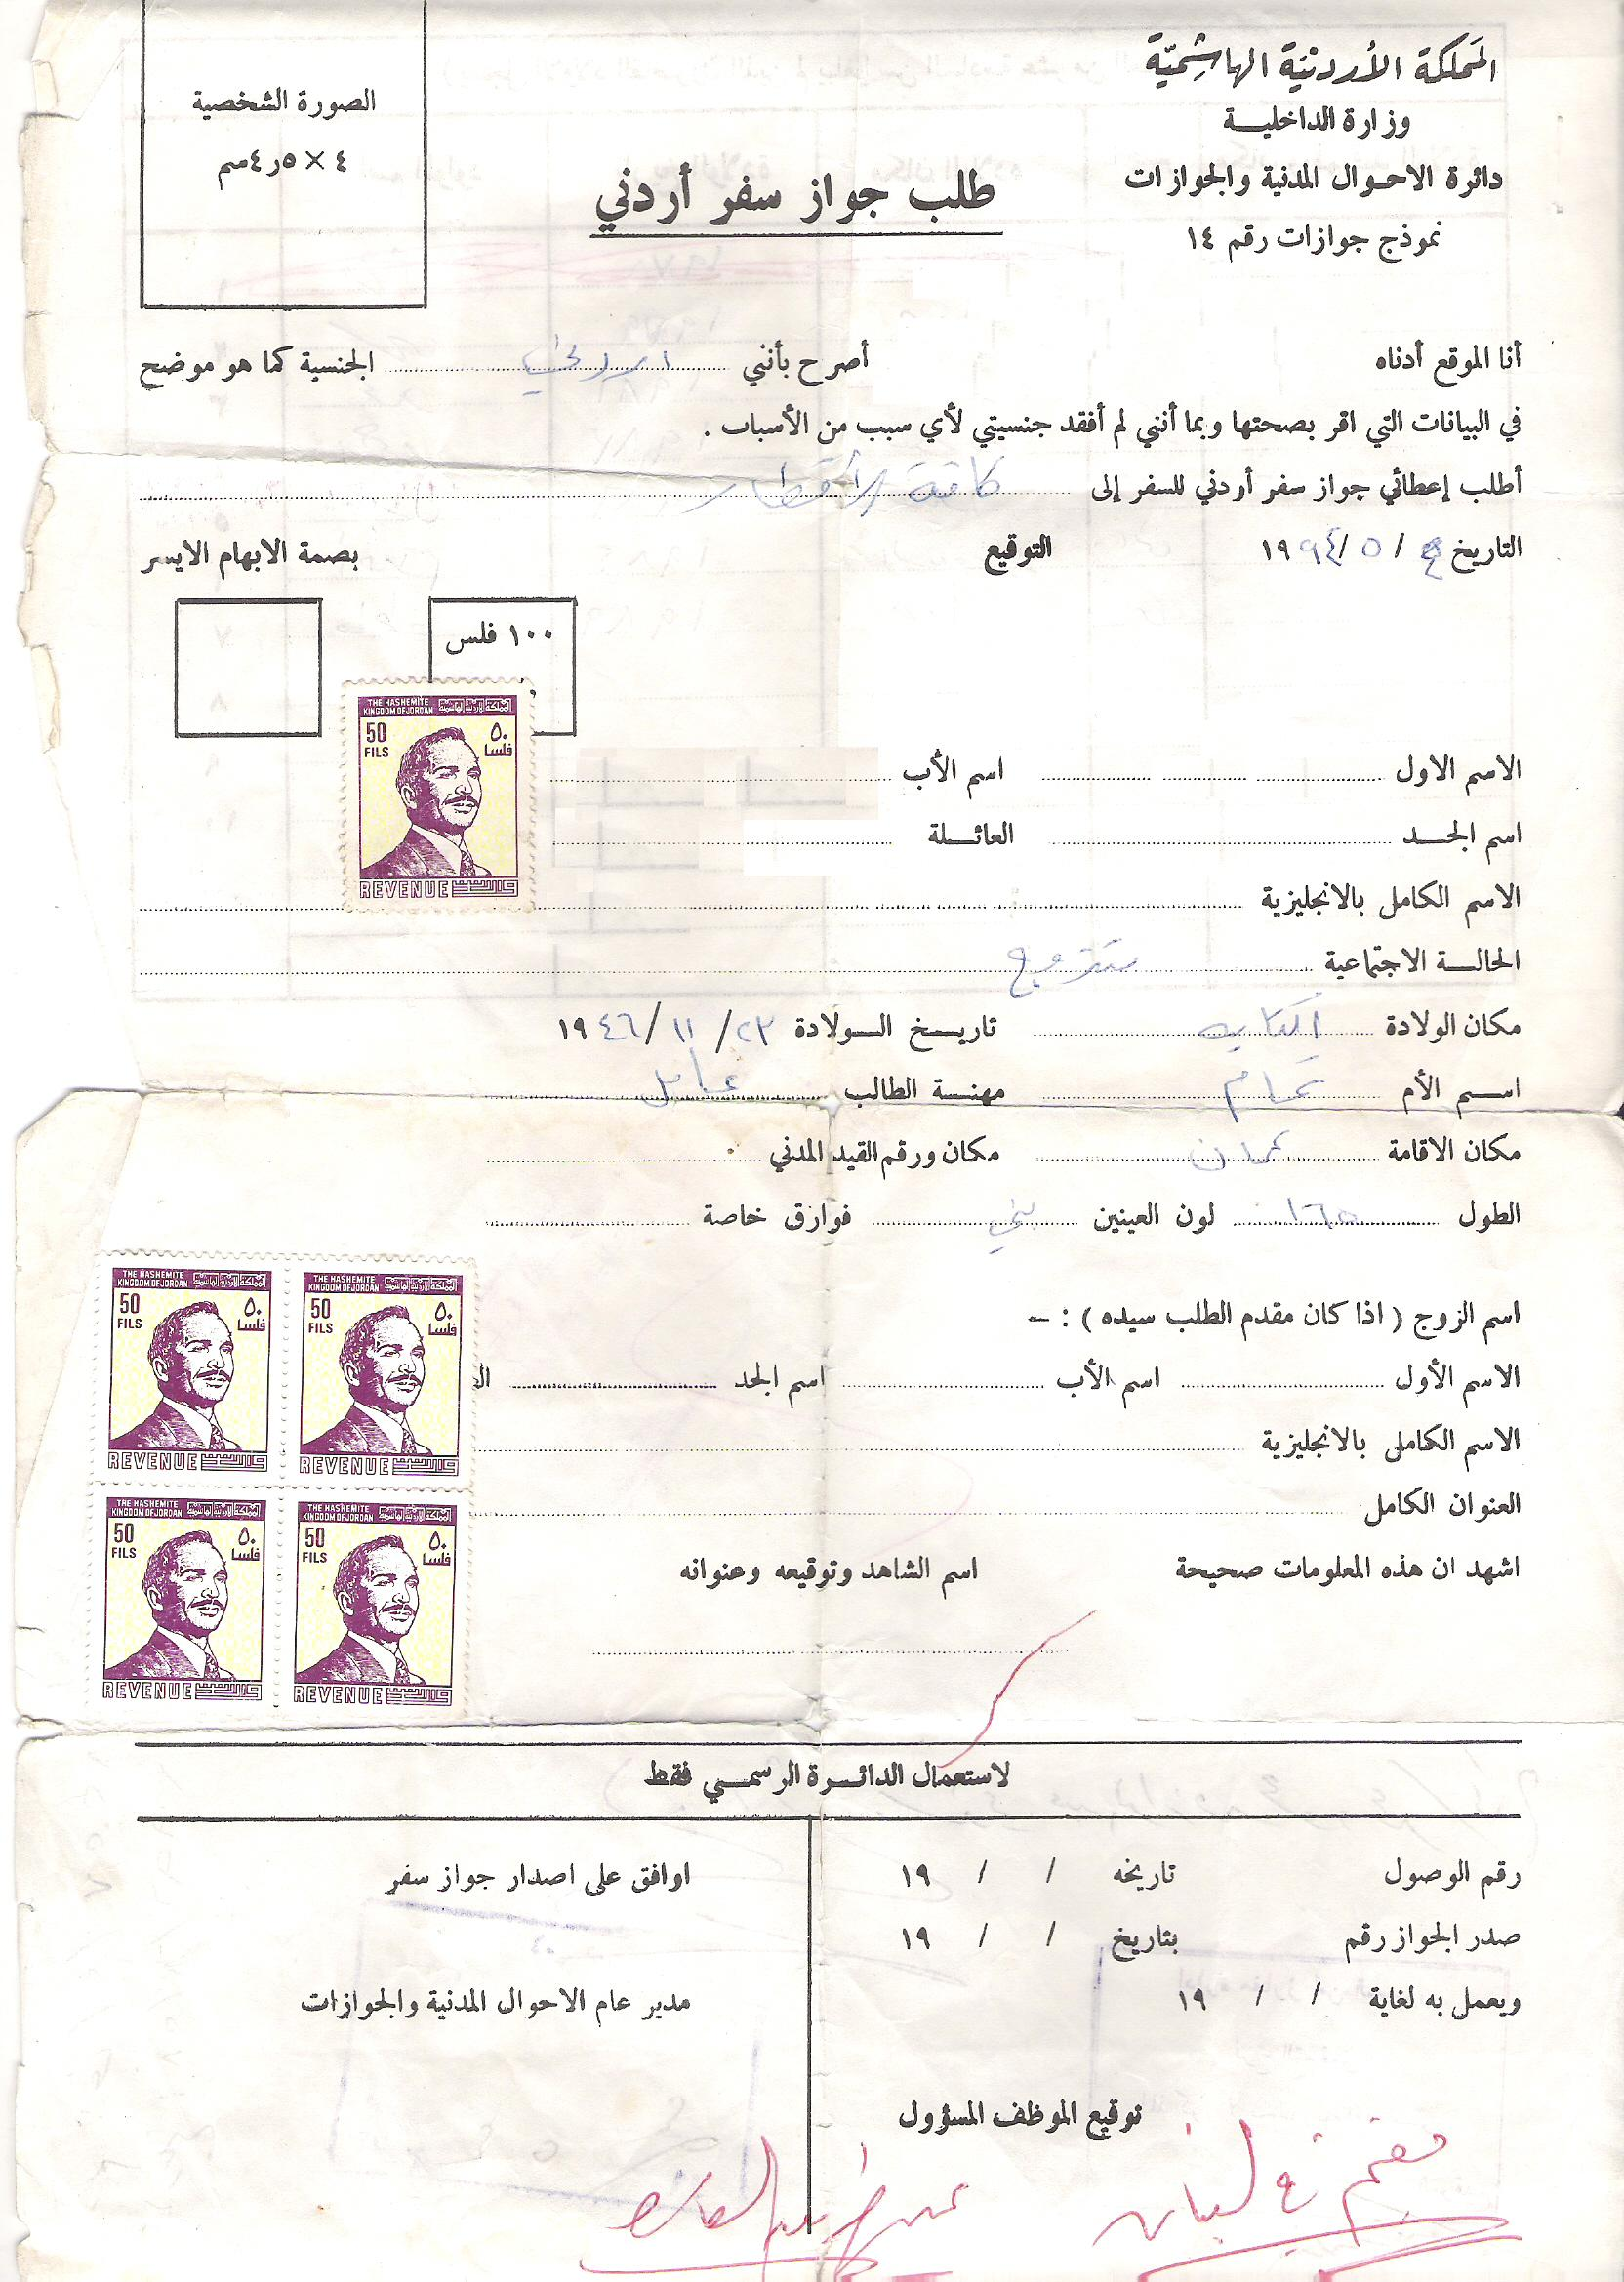 المملكة الأردنية الهاشمية
وزارة الداخلية
دائرة الاحوال المدنية والجوازات
نموذج جوازات رقم ١٤
طلب جواز سفر أردني
الصورة الشخصية
٤ × ٤٫٥سم
أنا الموقع أدناه أصرح بأنني اردني الجنسية كما هو موضح
في البيانات التي اقر بصحتها وبما أنني لم أفقد جنسيتي لأي سبب من الأسباب .
أطلب إعطائي جواز سفر أردني للسفر إلى كافة الاقطار
التاريخ ٤ / ٥ / ١٩٩٤ التوقيع بصمة الابهام الايسر
١٠٠ فلس
THE HASHEMITE KINGDOM OF JORDAN المملكة الاردنية الهاشمية
50 FILS ٥٠ فلسا
REVENUE واردات
الاسم الاول اسم الأب
اسم الجد العائلة
الاسم الكامل بالانجليزية
الحالة الاجتماعية متزوج
مكان الولادة تاريخ الولادة ٢٣ / ١١ / ١٩٤٦
اسم الأم تمام مهنة الطالب عامل
مكان الاقامة عمان مكان ورقم القيد المدني
الطول ١٦٥ لون العينين بني فوارق خاصة
اسم الزوج ( اذا كان مقدم الطلب سيده ) : –
الاسم الأول اسم الأب اسم الجد ال
الاسم الكامل بالانجليزية
العنوان الكامل
اشهد ان هذه المعلومات صحيحة اسم الشاهد وتوقيعه وعنوانه
THE HASHEMITE KINGDOM OF JORDAN المملكة الاردنية الهاشمية
50 FILS ٥٠ فلسا
REVENUE واردات
THE HASHEMITE KINGDOM OF JORDAN المملكة الاردنية الهاشمية
50 FILS ٥٠ فلسا
REVENUE واردات
THE HASHEMITE KINGDOM OF JORDAN المملكة الاردنية الهاشمية
50 FILS ٥٠ فلسا
REVENUE واردات
THE HASHEMITE KINGDOM OF JORDAN المملكة الاردنية الهاشمية
50 FILS ٥٠ فلسا
REVENUE واردات
لاستعمال الدائرة الرسمي فقط
رقم الوصول تاريخه / / ١٩
صدر الجواز رقم بتاريخ / / ١٩
ويعمل به لغاية / / ١٩
توقيع الموظف المسؤول
اوافق على اصدار جواز سفر
مدير عام الاحوال المدنية والجوازات
مقيم في لبنان